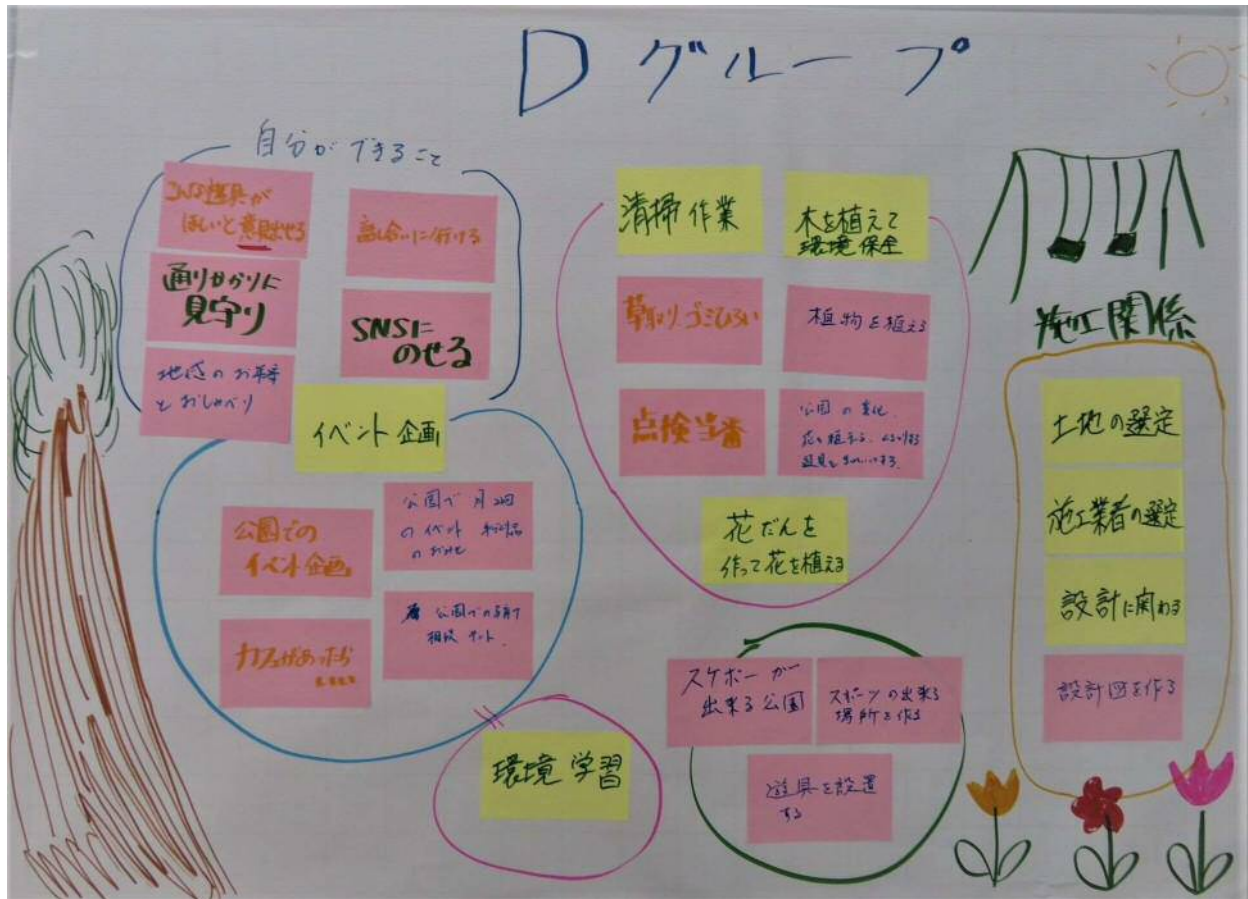 Dグループ
自分ができること
こんな遊具が
ほしいと意見出せる
話し合いに行ける
通りがかりに
見守り
SNSに
のせる
地域のお年寄
とおしゃべり
イベント企画
公園での
イベント企画
公園で月2回
のイベント
の
カフェがあったら
公園での子育て
相談テント
清掃作業
木を植えて
環境保全
草取り、ゴミひろい
植物を植える
点検当番
公園の美化、
花を植える、
遊具をきれいにする。
花だんを
作って花を植える
環境学習
スケボーが
出来る公園
スポーツの出来る
場所を作る
遊具を設置
する
施工関係
土地の選定
施工業者の選定
設計に関わる
設計図を作る